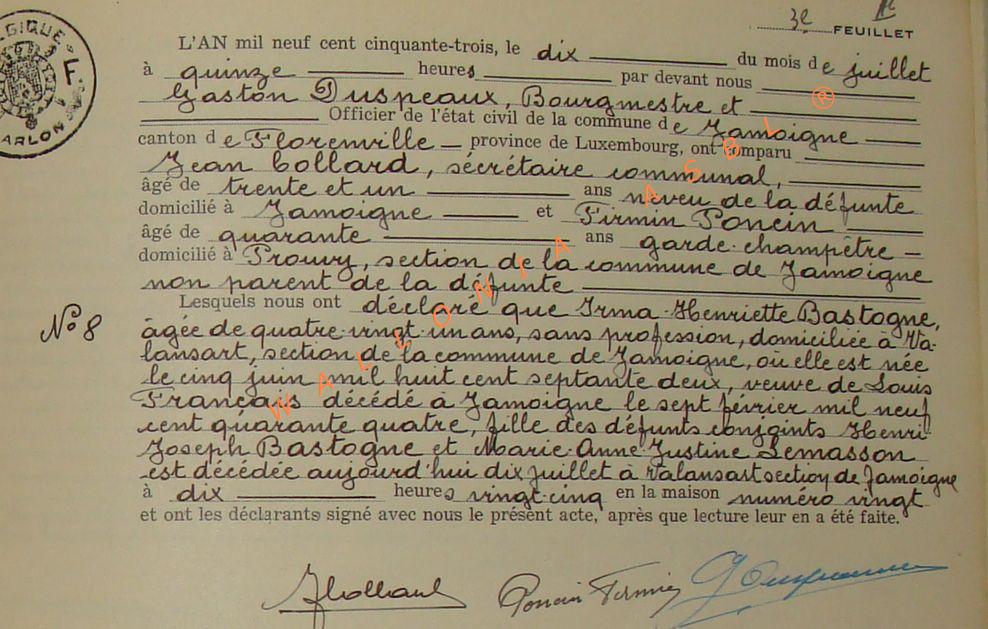 3e FEUILLET
L'AN mil neuf cent cinquante-trois, le dix du mois de juillet
à quinze heures par devant nous
Gaston Duspeaux, Bourgmestre et
Officier de l'état civil de la commune de Jamoigne
canton de Florenville province de Luxembourg, ont comparu
Jean Collard, sécrétaire communal,
âgé de trente et un ans neveu de la défunte
domicilié à Jamoigne et Firmin Poncin
âgé de quarante ans garde-champêtre
domicilié à Prouvy, section de la commune de Jamoigne
non parent de la défunte
Lesquels nous ont déclaré que Irma-Henriette Bastogne,
N° 8
âgée de quatre-vingt-un ans, sans profession, domiciliée à Va-
lansart, section de la commune de Jamoigne, où elle est née
le cinq juin mil huit cent septante deux, veuve de Louis
Français décédé à Jamoigne le sept février mil neuf
cent quarante quatre, fille des défunts conjoints Henri-
Joseph Bastogne et Marie-Anne-Justine Lemasson
est décédée aujourd'hui dix juillet à Valansart section de Jamoigne
à dix heures vingt-cinq en la maison numéro vingt
et ont les déclarants signé avec nous le présent acte, après que lecture leur en a été faite.
JCollard Poncin Firmin
BELGIQUE
ARLON
F
WALLONIA ASBL ®